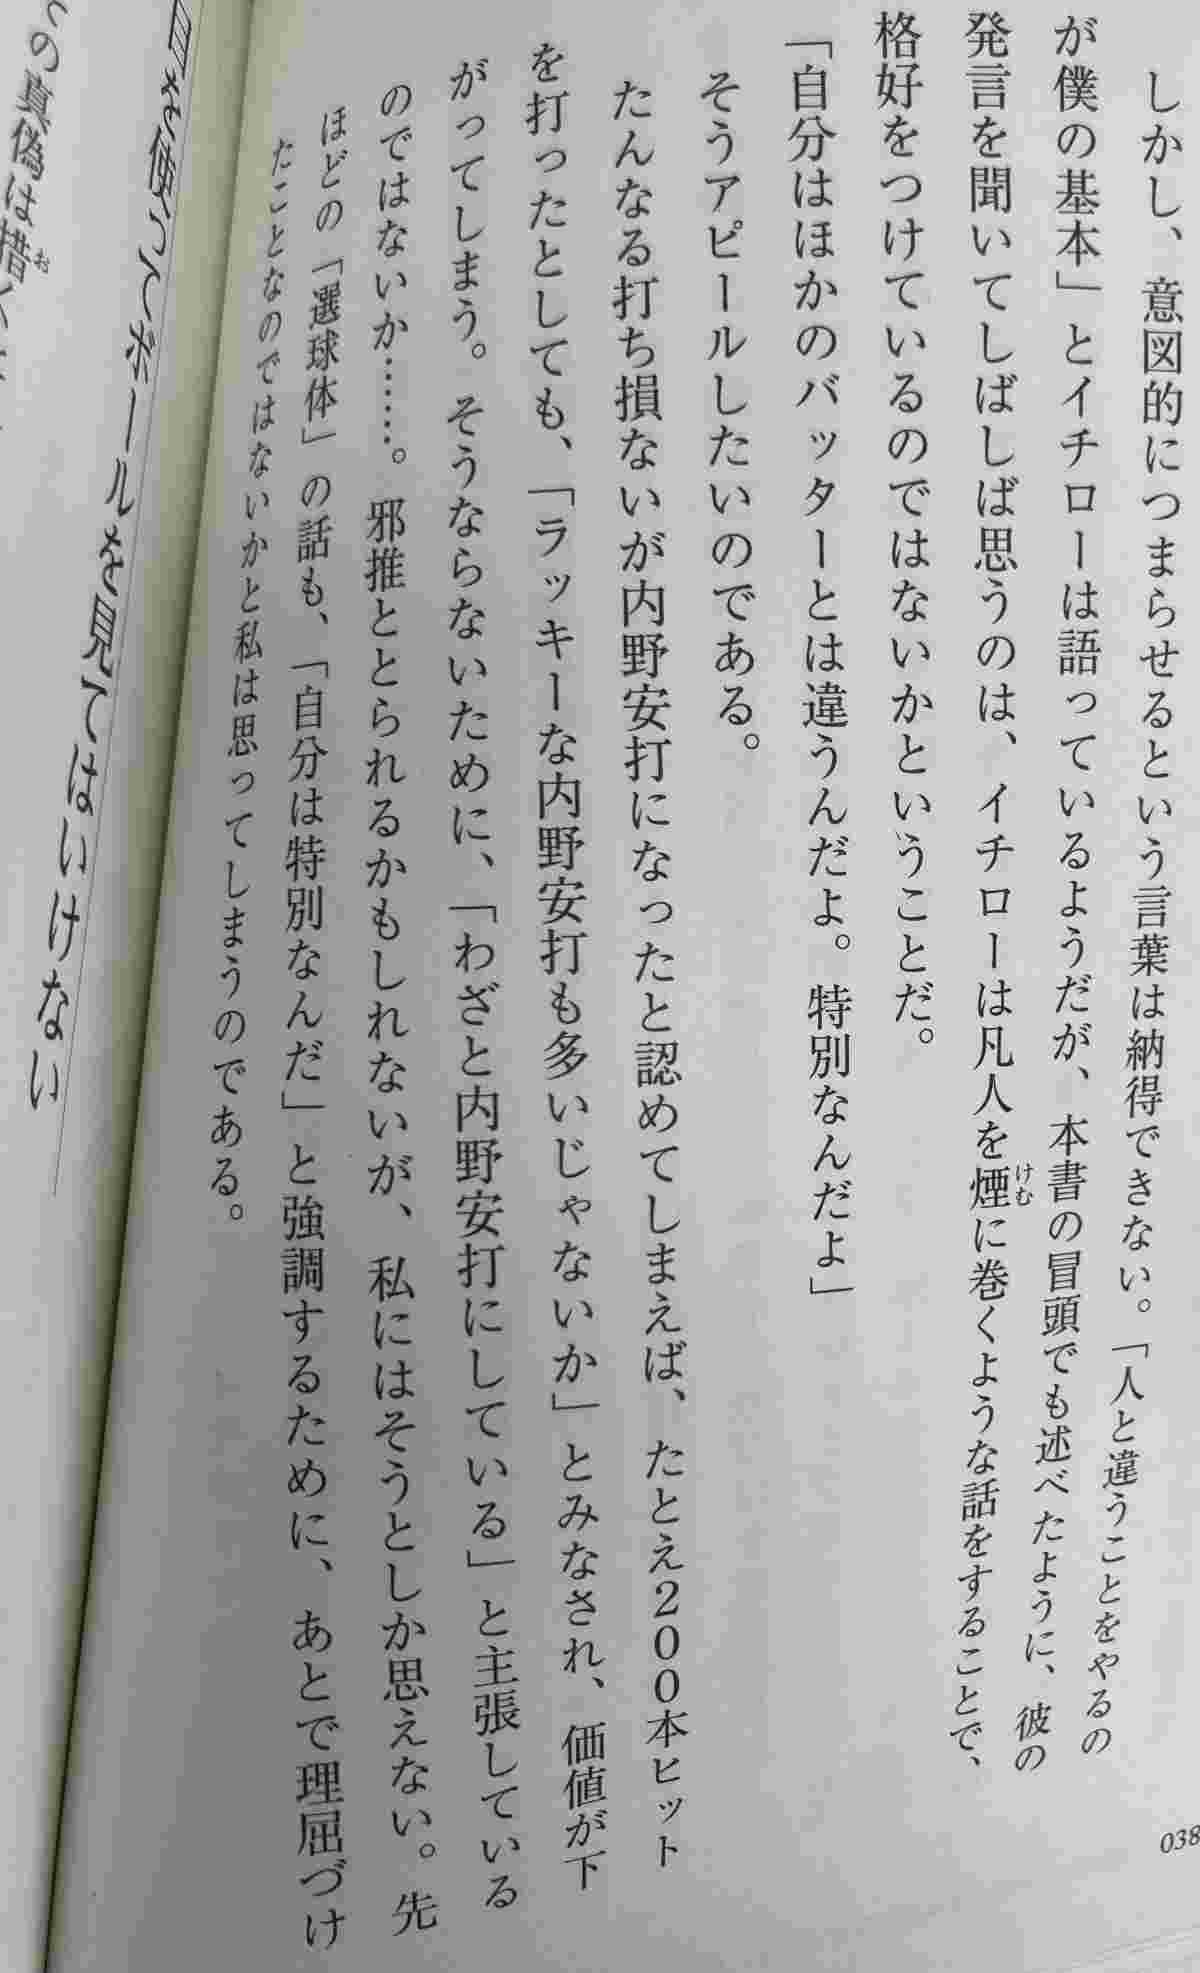 しかし、意図的につまらせるという言葉は納得できない。「人と違うことをやるの
が僕の基本」とイチローは語っているようだが、本書の冒頭でも述べたように、彼の
発言を聞いてしばしば思うのは、イチローは凡人を煙に巻くような話をすることで、
けむ
格好をつけているのではないかということだ。
「自分はほかのバッターとは違うんだよ。特別なんだよ」
そうアピールしたいのである。
たんなる打ち損ないが内野安打になったと認めてしまえば、たとえ200本ヒット
を打ったとしても、「ラッキーな内野安打も多いじゃないか」とみなされ、価値が下
がってしまう。そうならないために、「わざと内野安打にしている」と主張している
のではないか……。邪推ととられるかもしれないが、私にはそうとしか思えない。先
ほどの「選球体」の話も、「自分は特別なんだ」と強調するために、あとで理屈づけ
たことなのではないかと私は思ってしまうのである。
038
目を使ってボールを見てはいけない
の真偽は措く
お